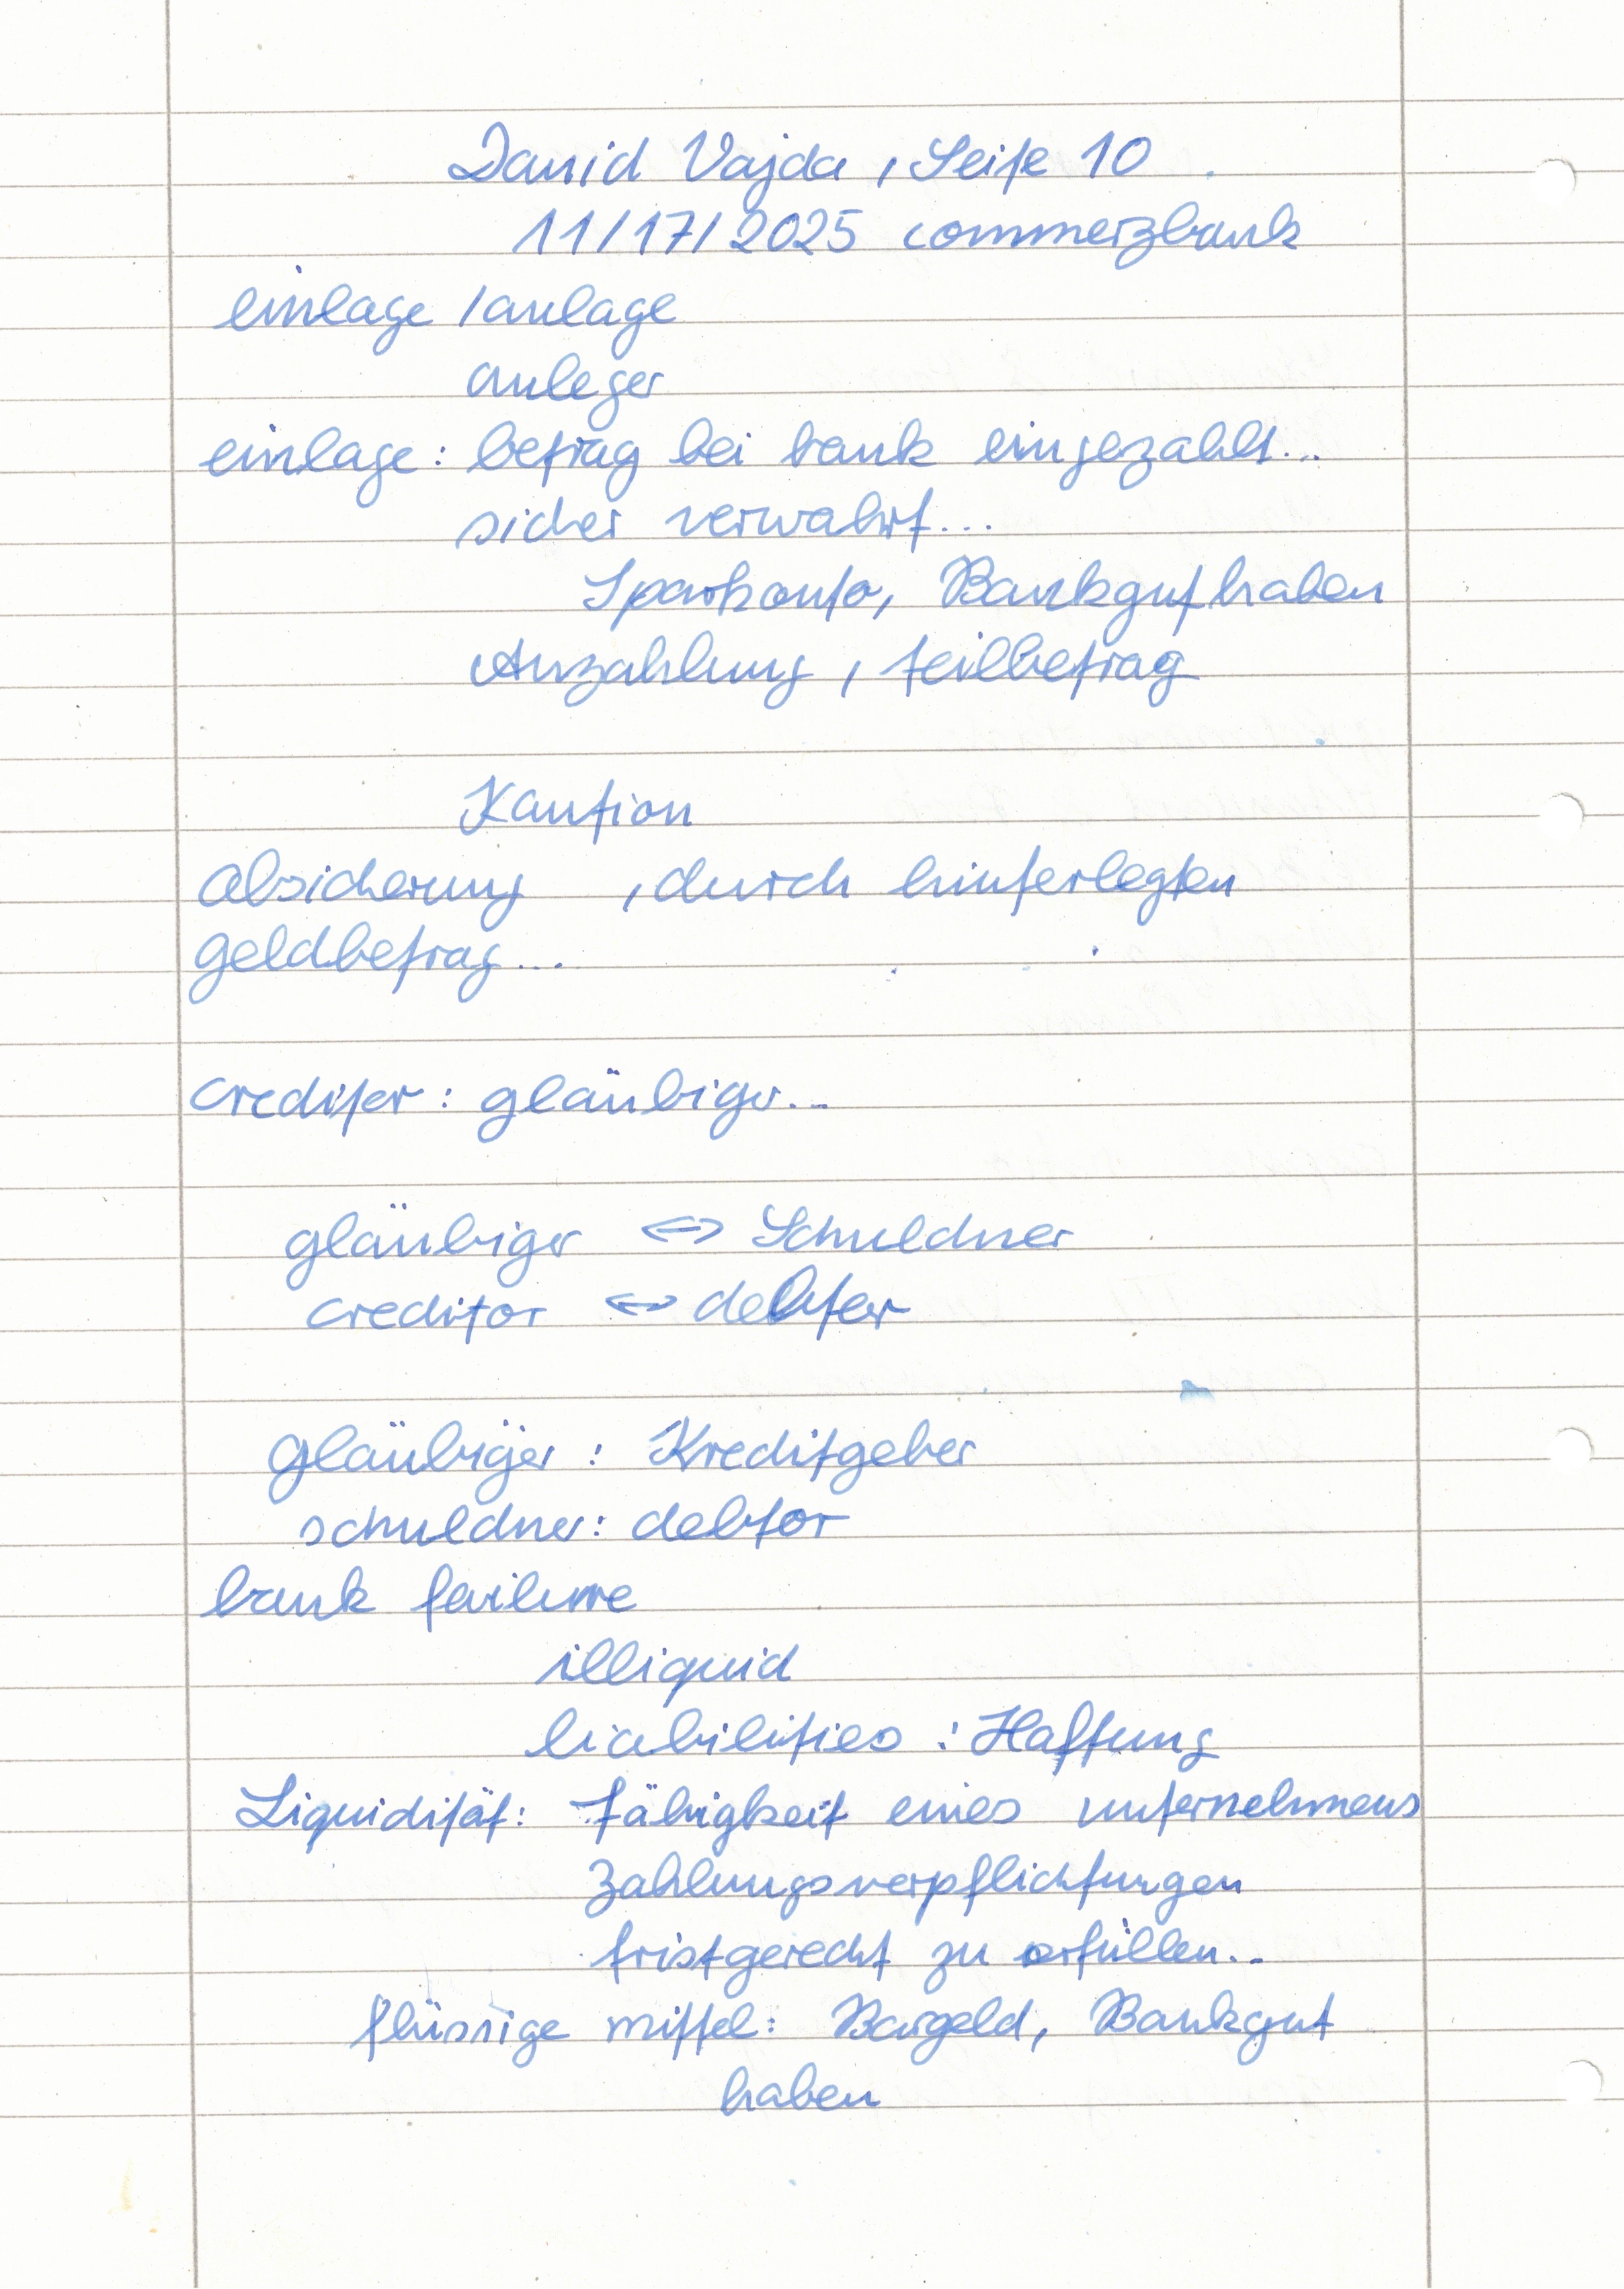 David Vajda, Seite 10
11/17/2025 commerzbank
einlage /anlage
anleger
einlage: betrag bei bank eingezahlt...
sicher verwahrt...
Sparkonto, Bankguthaben
Anzahlung, teilbetrag
Kaution
Absicherung , durch hinterlegten
geldbetrag...
crediter: gläubiger...
gläubiger <=> Schuldner
creditor <=> debter
gläubiger : Kreditgeber
schuldner: debtor
bank failure
illiquid
liabilities : Haftung
Liquidität: Fähigkeit eines unternehmens
Zahlungsverpflichtungen
fristgerecht zu erfüllen...
flüssige mittel: Bargeld, Bankgut
haben